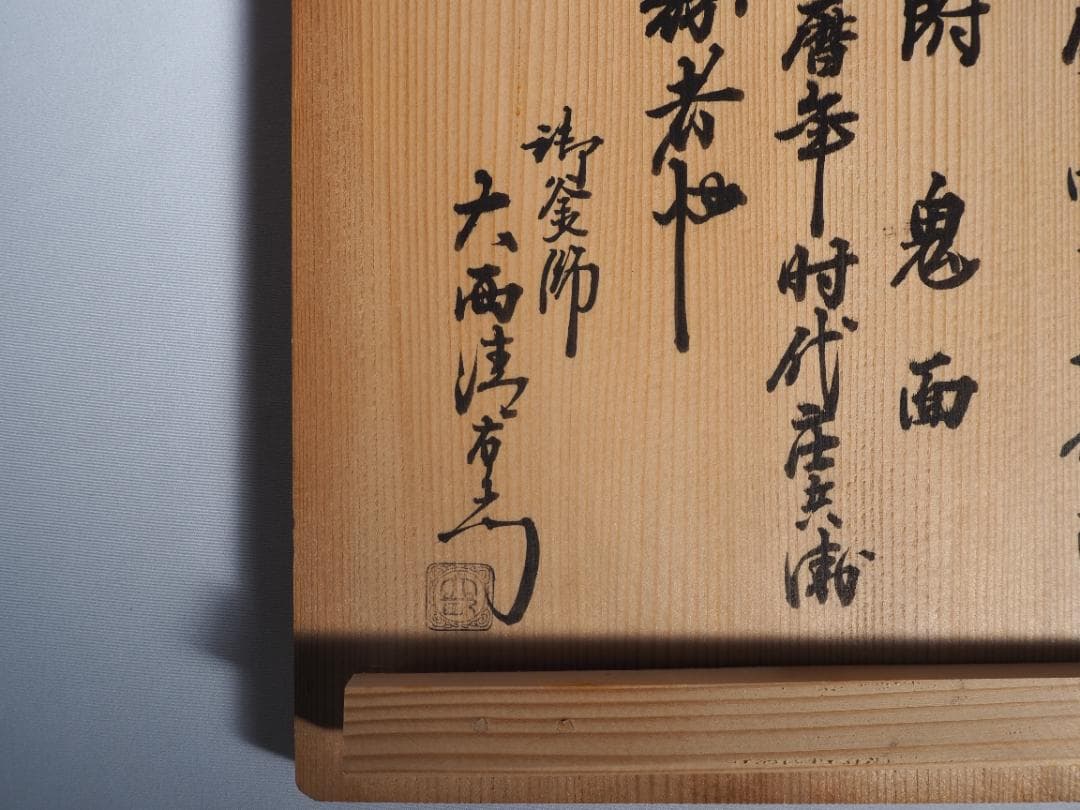 附 鬼面
暦年时代庄兵衛
者也
御釜師
大西清右衛門